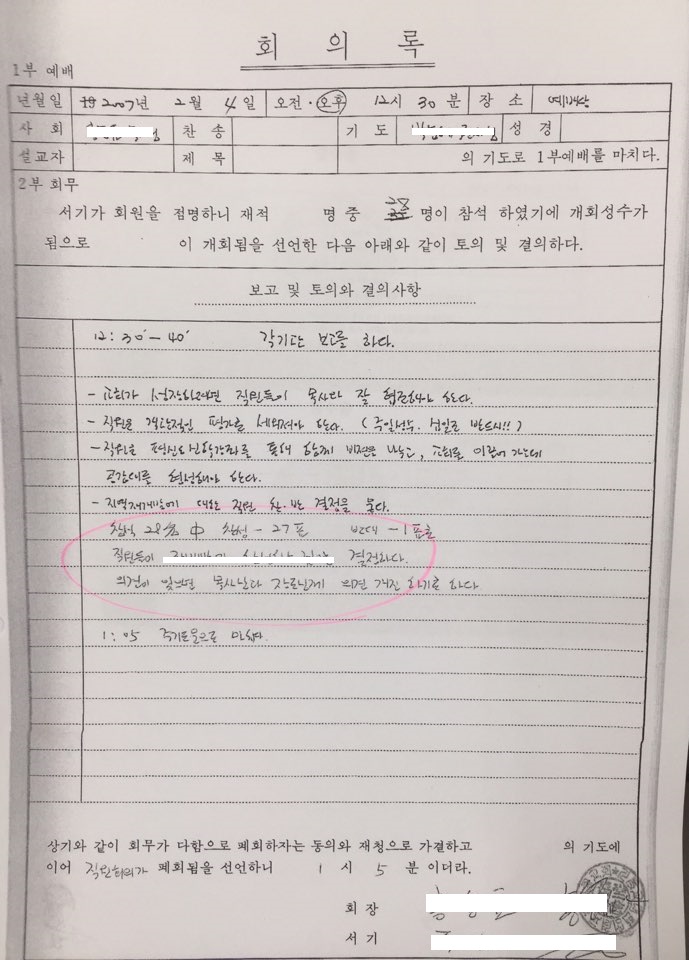 회 의 록
1부 예배
년월일 19 2007년 2월 4일 오전·오후 12시 30분 장소
사 회 찬 송 기 도 성 경
설교자 제 목 의 기도로 1부예배를 마치다.
2부 회무
서기가 회원을 점명하니 재적 명 중 28 명이 참석 하였기에 개회성수가
됨으로 이 개회됨을 선언한 다음 아래와 같이 토의 및 결의하다.
보고 및 토의와 결의사항
12:30′-40′ 각기관 보고를 하다.
- 교회가 성장하려면 직원들이 목사와 잘 협조해야 한다.
- 직원은 객관적인 평가를 세워져야 한다. (주일성수, 십일조 반드시!!)
- 직원은 평신도신학강좌를 통해 함께 비전을 나누고, 교회를 이끌어 가는데
공감대를 형성해야 한다.
- 지역재개발에 대한 직원 찬·반 결정을 묻다.
참석 28名 中 찬성 - 27표 반대 - 1표로
직원들이 결정하다.
의견이 있으면 목사님과 장로님께 의견 개진 하기로 하다
1:05 주기도문으로 마치다.
상기와 같이 회무가 다함으로 폐회하자는 동의와 재청으로 가결하고 의 기도에
이어 직원회의가 폐회됨을 선언하니 1시 5분이더라.
회 장
서 기